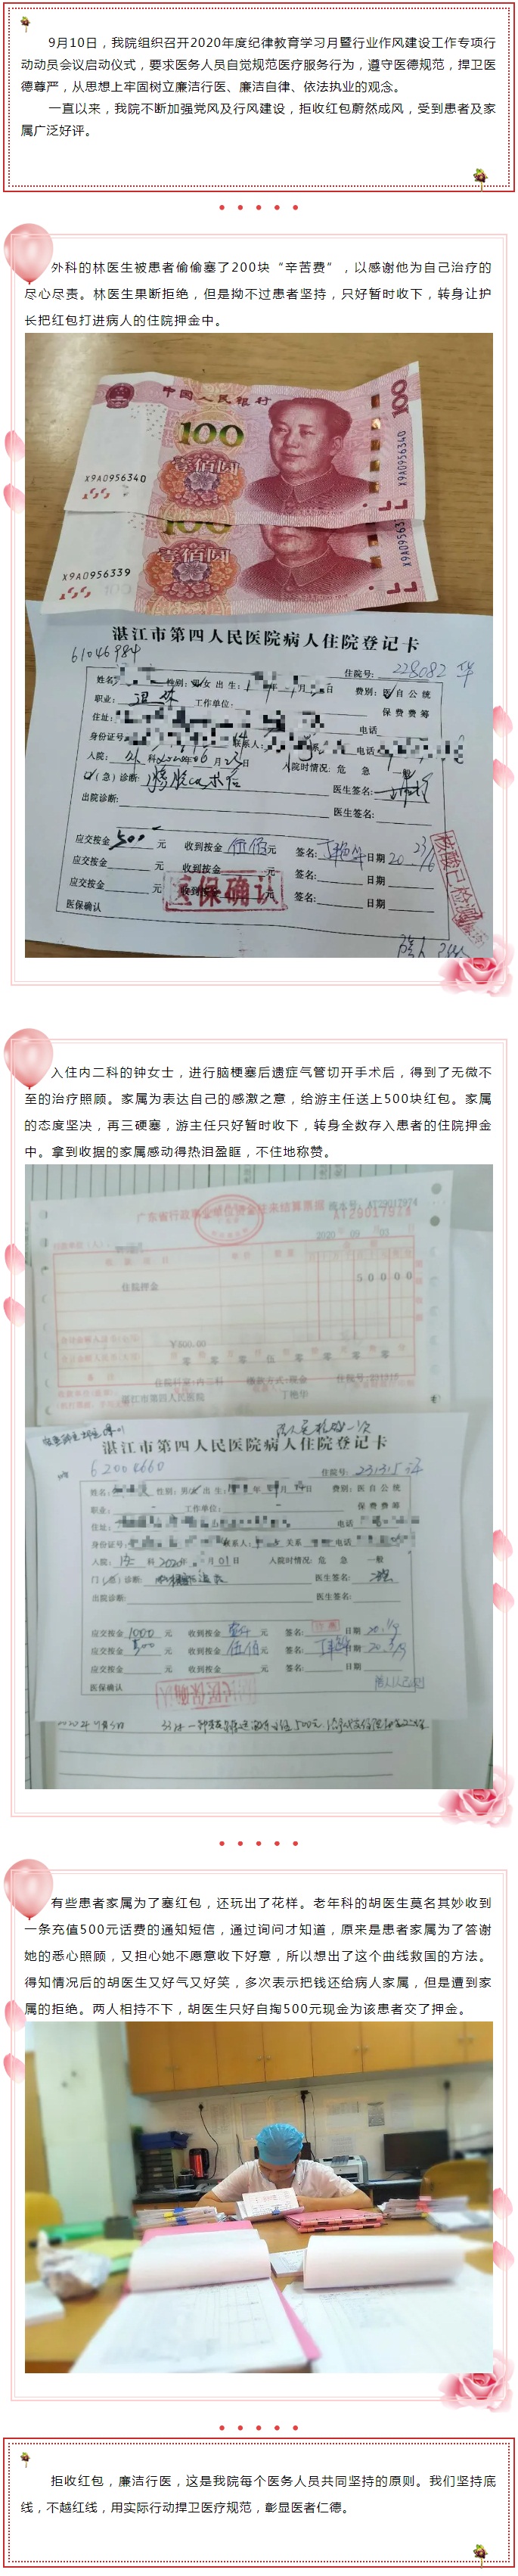 9月10日，我院组织召开2020年度纪律教育学习月暨行业作风建设工作专项行
动动员会议启动仪式，要求医务人员自觉规范医疗服务行为，遵守医德规范，捍卫医
德尊严，从思想上牢固树立廉洁行医、廉洁自律、依法执业的观念。
一直以来，我院不断加强党风及行风建设，拒收红包蔚然成风，受到患者及家
属广泛好评。
外科的林医生被患者偷偷塞了200块“辛苦费”，以感谢他为自己治疗的
尽心尽责。林医生果断拒绝，但是拗不过患者坚持，只好暂时收下，转身让护
长把红包打进病人的住院押金中。
中国人民银行
100
100
壹佰圆
X9A0956340
X9A0956340
100
100
壹佰圆
X9A0956339
100
湛江市第四人民医院病人住院登记卡
61046984
住院号: 228082
姓名: 性别: 男/女 出生: 年 月 日 费别: 医 自 公 统
职业: 退休 工作单位: 保 费 费 筹
住址: 电话
身份证号: 联系人: 关系 电话
入院: 外 科 2020年06月23日 入院时情况: 危 急 一般
门(急)诊断: 医生签名:
出院诊断: 医生签名:
应交按金 500 元 收到按金 伍佰 元 签名: 日期
应交按金 元 收到按金 元 签名: 日期
应交按金 元 收到按金 元 签名: 日期
医保确认
医保确认
入住内二科的钟女士，进行脑梗塞后遗症气管切开手术后，得到了无微不
至的治疗照顾。家属为表达自己的感激之意，给游主任送上500块红包。家属
的态度坚决，再三硬塞，游主任只好暂时收下，转身全数存入患者的住院押金
中。拿到收据的家属感动得热泪盈眶，不住地称赞。
AT29017974
2020 09 03
住院押金
50000
¥500.00
住院科室:内二科 缴款方式:现金
湛江市第四人民医院 丁艳华
湛江市第四人民医院病人住院登记卡
62004660
住院号: 231315
姓名: 性别: 男/女 出生: 年 月 日 费别: 医 自 公 统
职业: 工作单位: 保 费 费 筹
住址: 电话
身份证号: 联系人: 关系 电话
入院: 科 2020年 月 01日 入院时情况: 危 急 一般
门(急)诊断: 医生签名:
出院诊断: 医生签名:
应交按金 1000 元 收到按金 壹仟 元 签名: 日期
应交按金 500 元 收到按金 伍佰 元 签名: 日期
应交按金 元 收到按金 元 签名: 日期
医保确认
有些患者家属为了塞红包，还玩出了花样。老年科的胡医生莫名其妙收到
一条充值500元话费的通知短信，通过询问才知道，原来是患者家属为了答谢
她的悉心照顾，又担心她不愿意收下好意，所以想出了这个曲线救国的方法。
得知情况后的胡医生又好气又好笑，多次表示把钱还给病人家属，但是遭到家
属的拒绝。两人相持不下，胡医生只好自掏500元现金为该患者交了押金。
拒收红包，廉洁行医，这是我院每个医务人员共同坚持的原则。我们坚持底
线，不越红线，用实际行动捍卫医疗规范，彰显医者仁德。